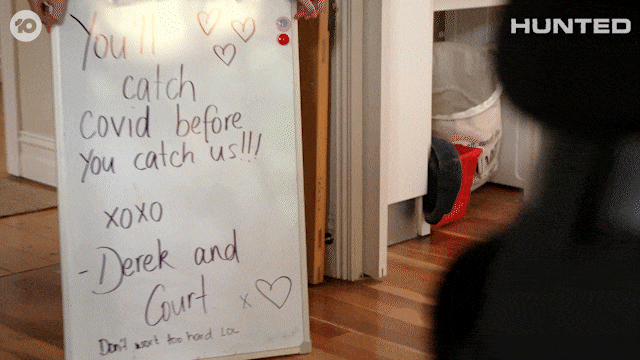 10
HUNTED
You'll
catch
Covid before
you catch us!!!
xoxo
- Derek and
Court x
Don't work too hard LOL